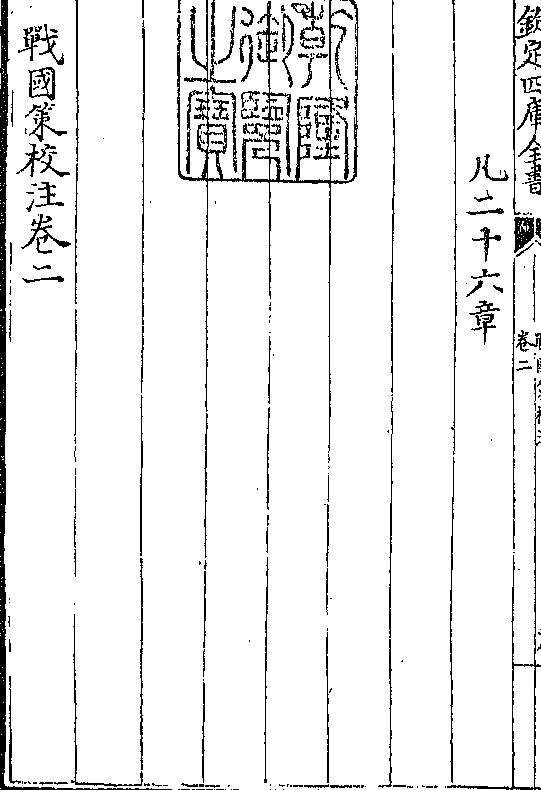 欽定四庫全書
卷二
凡二十六章
乾隆御覽之寶
戰國策校注卷二